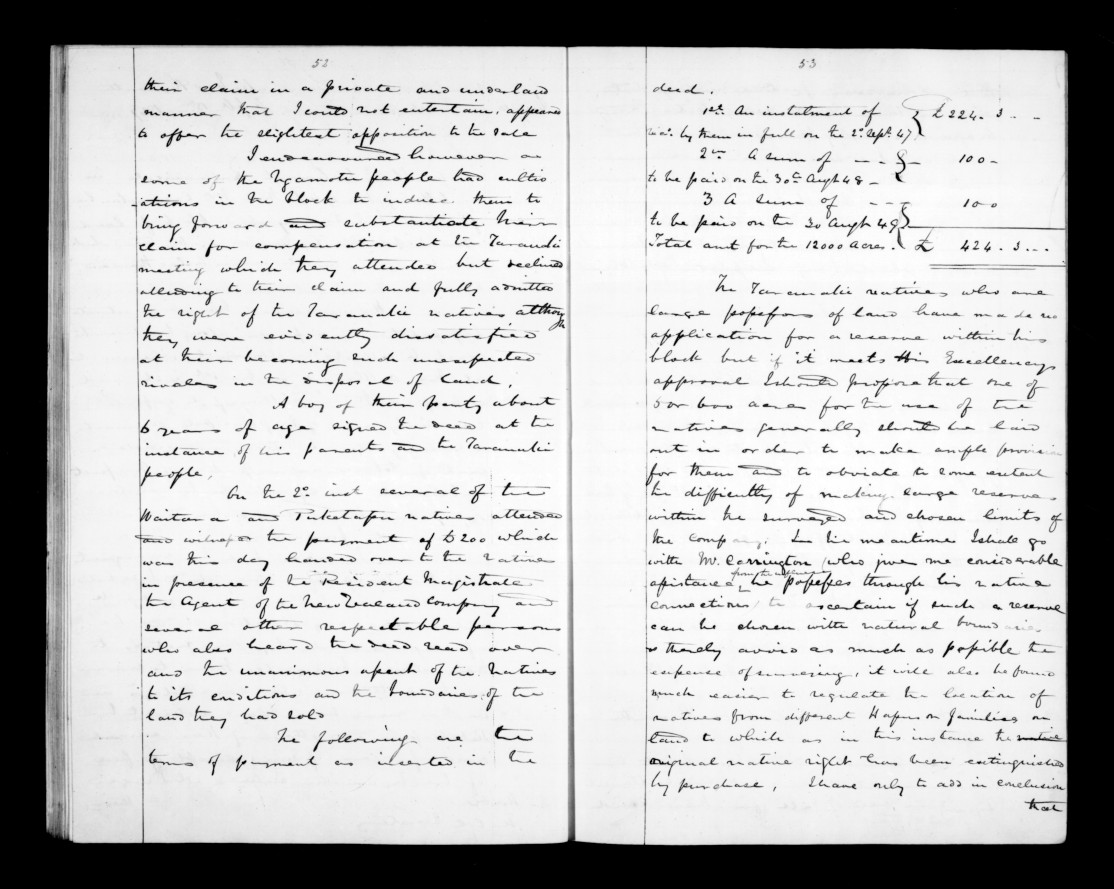 52
their claim in a private and underhand
manner that I could not entertain, appeared
to offer the slightest opposition to the sale
I endeavoured however as
some of the Ngamotu people had cultiv
ations in the block to induce them to
bring forward and substantiate their
claim for compensation at the Taranaki
meeting which they attended but declined
alluding to their claim and fully admitted
the right of the Taranaki natives although
they were evidently dissatisfied
at their becoming such unexpected
rivals in the disposal of land.
A boy of their party about
6 years of age signed the deed at the
instance of his parents and the Taranaki
people.
On the 2d. inst several of the
Waitara and Puketapu natives attended
and witnessed the payment of £200 which
was this day handed over to the natives
in presence of the Resident Magistrate
the Agent of the New Zealand Company and
several other respectable persons
who also heard the deed read over
and the unanimous assent of the Natives
to its conditions and the boundaries of the
land they had sold
The following are the
terms of payment as inserted in the
53
deed.
1st. An instalment of £224. 3 - -
by them in full on the 2d. Sept. 47
2nd A sum of - - - 100 -
to be paid on the 30th Augt 48 -
3 A sum of - - - 100
to be paid on the 30 Augt 49
Total amt for the 12000 Acres. £ 424. 3 - -
The Taranaki natives who are
large possessors of land have made no
application for a reserve within this
block but if it meets His Excellencys
approval I should propose that one of
5 or 600 acres for the use of the
natives generally should be laid
out in order to make ample provision
for them and to obviate to some extent
the difficulty of making large reserves
within the surveyed and chosen limits of
the Company. In the meantime I shall go
with Mr. Carrington (who gives me considerable
assistance from the influence he possesses through his native
connections) to ascertain if such a reserve
can be chosen with natural boundaries
& thereby avoid as much as possible the
expense of surveying, it will also be found
much easier to regulate the location of
natives from different Hapus or families on
land to which as in this instance the native
original native right has been extinguished
by purchase, I have only to add in conclusion
that